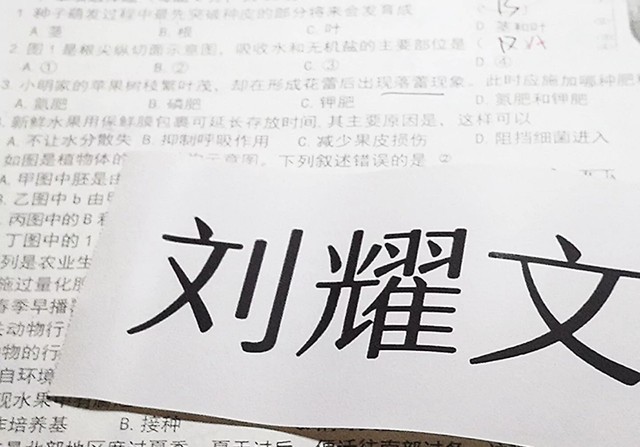 1 种子萌发过程中最先突破种皮的部分将来会发育成
A. 茎 B. 根 C. 叶 D. 茎和叶
2. 图1是根尖纵切面示意图，吸收水和无机盐的主要部位是
A. ① B. ② C. ③ D. ④
3. 小明家的苹果树枝繁叶茂，却在形成花蕾后出现落蕾现象。此时应施加哪种肥
A. 氮肥 B. 磷肥 C. 钾肥 D. 氮肥和钾肥
新鲜水果用保鲜膜包裹可延长存放时间, 其主要原因是，这样可以
A. 不让水分散失 B. 抑制呼吸作用 C. 减少果皮损伤 D. 阻挡细菌进入
如图是植物体的 示意图。下列叙述错误的是 ②
A. 甲图中胚是由
B. 乙图中b由
丙图中的B和
丁图中的1
列是农业生
施过量化肥
春季早播
动物行
物的行
自环境
现水果中
培养基 B. 接种
刘耀文